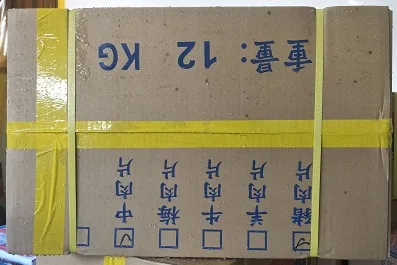 豬肉片
羊肉片
牛肉片
梅肉片
中肉片
重量: 12 KG